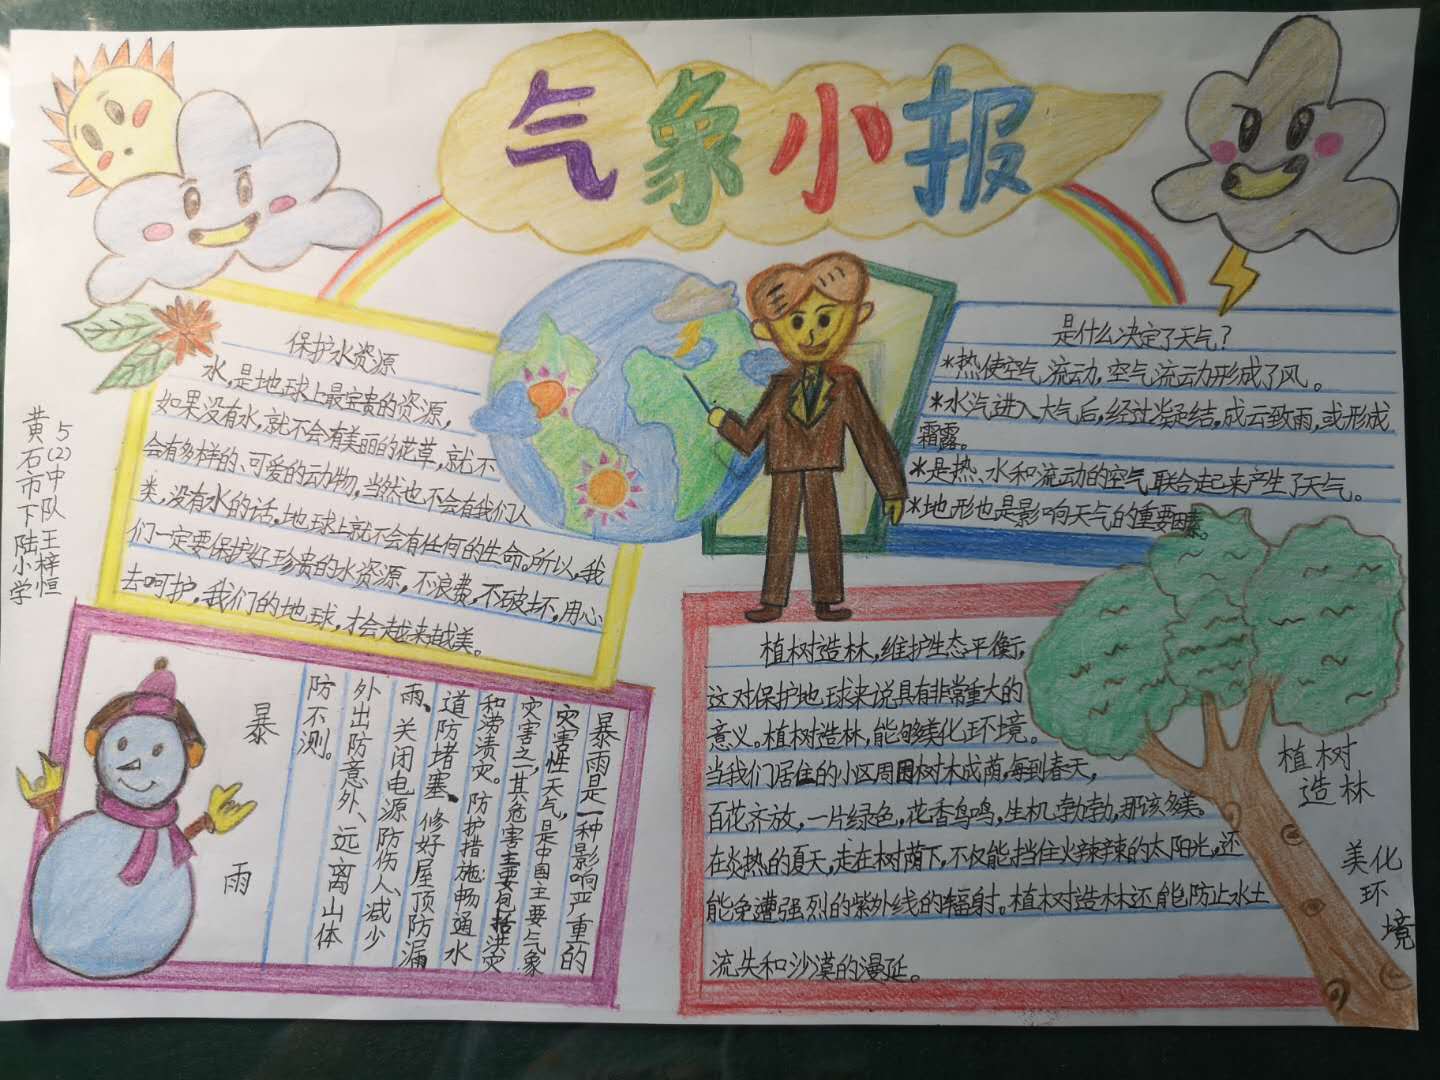 气象小报
黄石市下陆小学
5(2)中队王梓恒
保护水资源
水,是地球上最宝贵的资源,
如果没有水,就不会有美丽的花草,就不
会有多样的、可爱的动物,当然也不会有我们人
类,没有水的话,地球上就不会有任何的生命。所以,我
们一定要保护好珍贵的水资源,不浪费,不破坏,用心
去呵护,我们的地球,才会越来越美。
是什么决定了天气?
*热使空气流动,空气流动形成了风。
*水汽进入大气后,经过凝结,成云致雨,或形成
霜露。
*是热、水和流动的空气联合起来产生了天气。
*地形也是影响天气的重要因素。
暴雨
暴雨是一种影响严重的
灾害性天气,是中国主要气象
灾害之一,其危害主要包括洪灾
和涝渍灾。防护措施:畅通水
道防堵塞、修好屋顶防漏
雨、关闭电源防伤人、减少
外出防意外、远离山体
防不测。
植树造林,维护生态平衡,
这对保护地球来说具有非常重大的
意义。植树造林,能够美化环境。
当我们居住的小区周围树木成荫,每到春天,
百花齐放,一片绿色,花香鸟鸣,生机勃勃,那该多美。
在炎热的夏天,走在树荫下,不仅能挡住火辣辣的太阳光,还
能免遭强烈的紫外线的辐射。植树造林还能防止水土
流失和沙漠的漫延。
植树
造林
美化
环
境